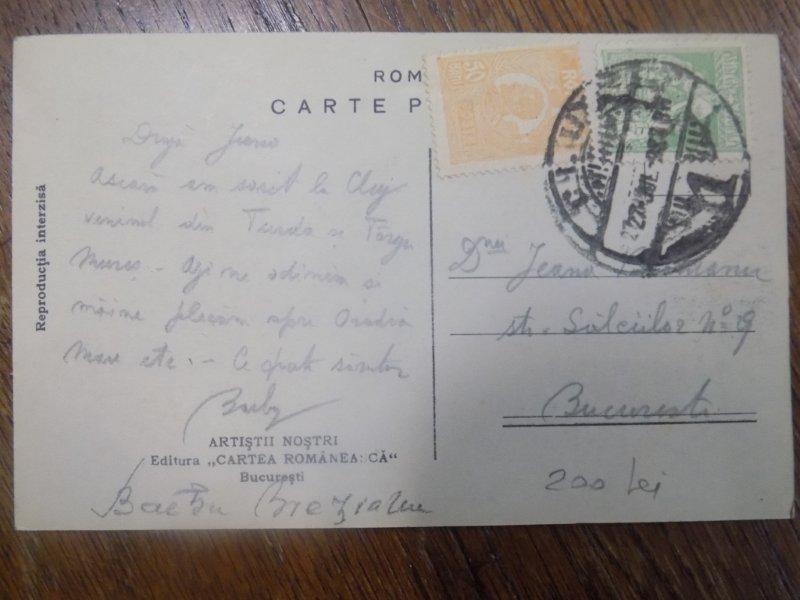 ROM
CARTE P
50
BANI
CLUJ
1
Reproducția interzisă
Dragă Jeana
Aseară am sosit la Cluj
venind din Turda și Târgu
Mureș - Azi ne odihnim și
mâine plecăm spre Oradia
Mare etc. - Ce
Barby
ARTIȘTII NOȘTRI
Editura „CARTEA ROMÂNEASCĂ"
București
Barbu Brezianu
Dnei Jeana
str. Sălciilor No 9
București
200 Lei